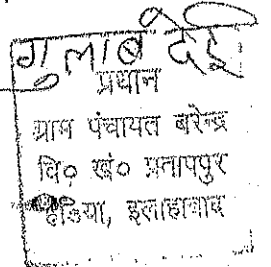 गुलाब देई
प्रधान
ग्राम पंचायत बरेन्द्र
वि० खं० प्रतापपुर
हंडिया, इलाहाबाद